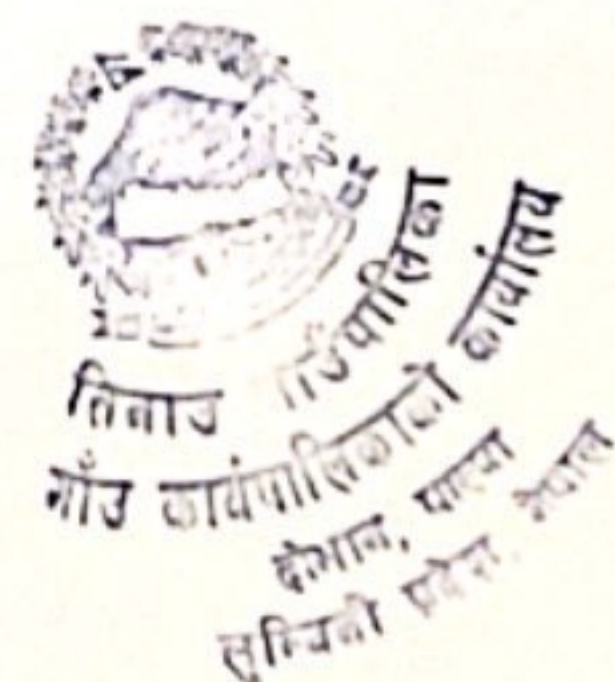 तिनाउ गाउँपालिका
गाँउ कार्यपालिकाको कार्यालय
दोभान, पाल्पा
लुम्बिनी प्रदेश, नेपाल